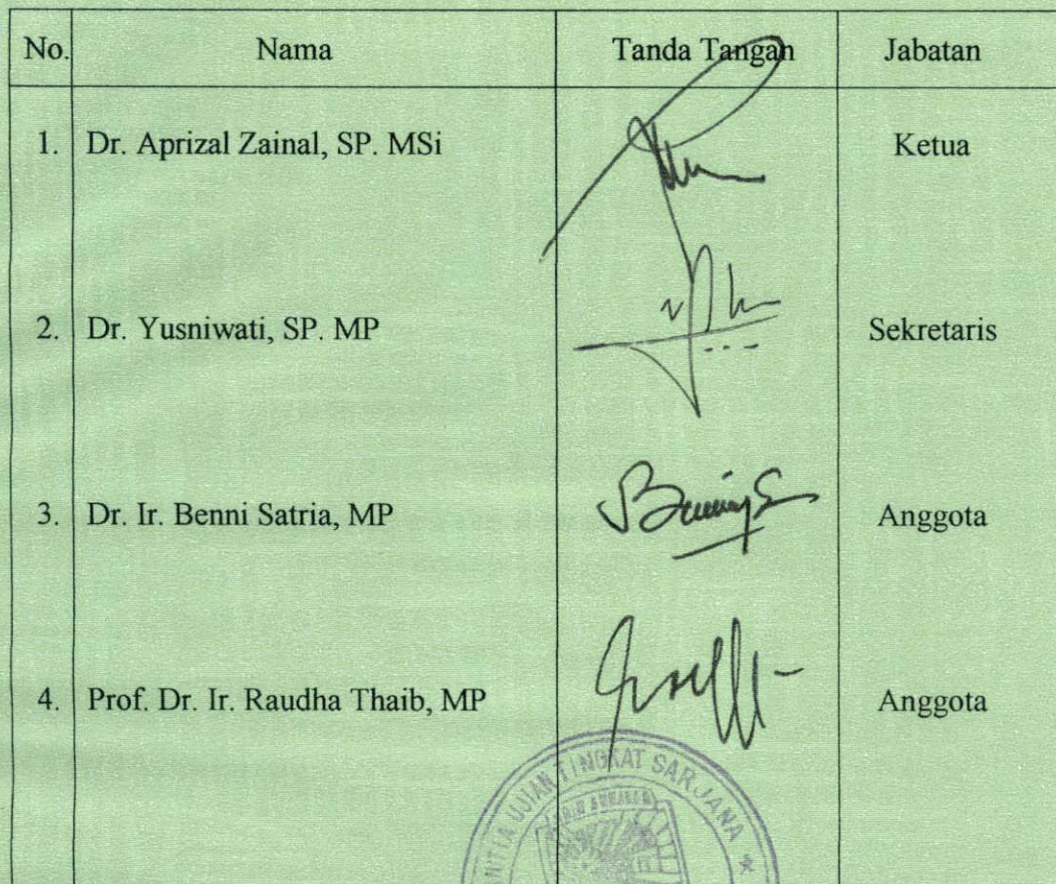 No. Nama Tanda Tangan Jabatan
1. Dr. Aprizal Zainal, SP. MSi Ketua
2. Dr. Yusniwati, SP. MP Sekretaris
3. Dr. Ir. Benni Satria, MP Anggota
4. Prof. Dr. Ir. Raudha Thaib, MP Anggota
UJIAN TINGKAT SARJANA